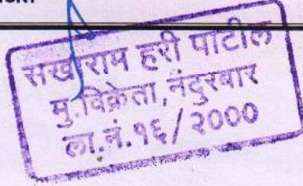 सखाराम हरी पाटील
मु.विक्रेता, नंदुरबार
ला.नं.१६/२०००